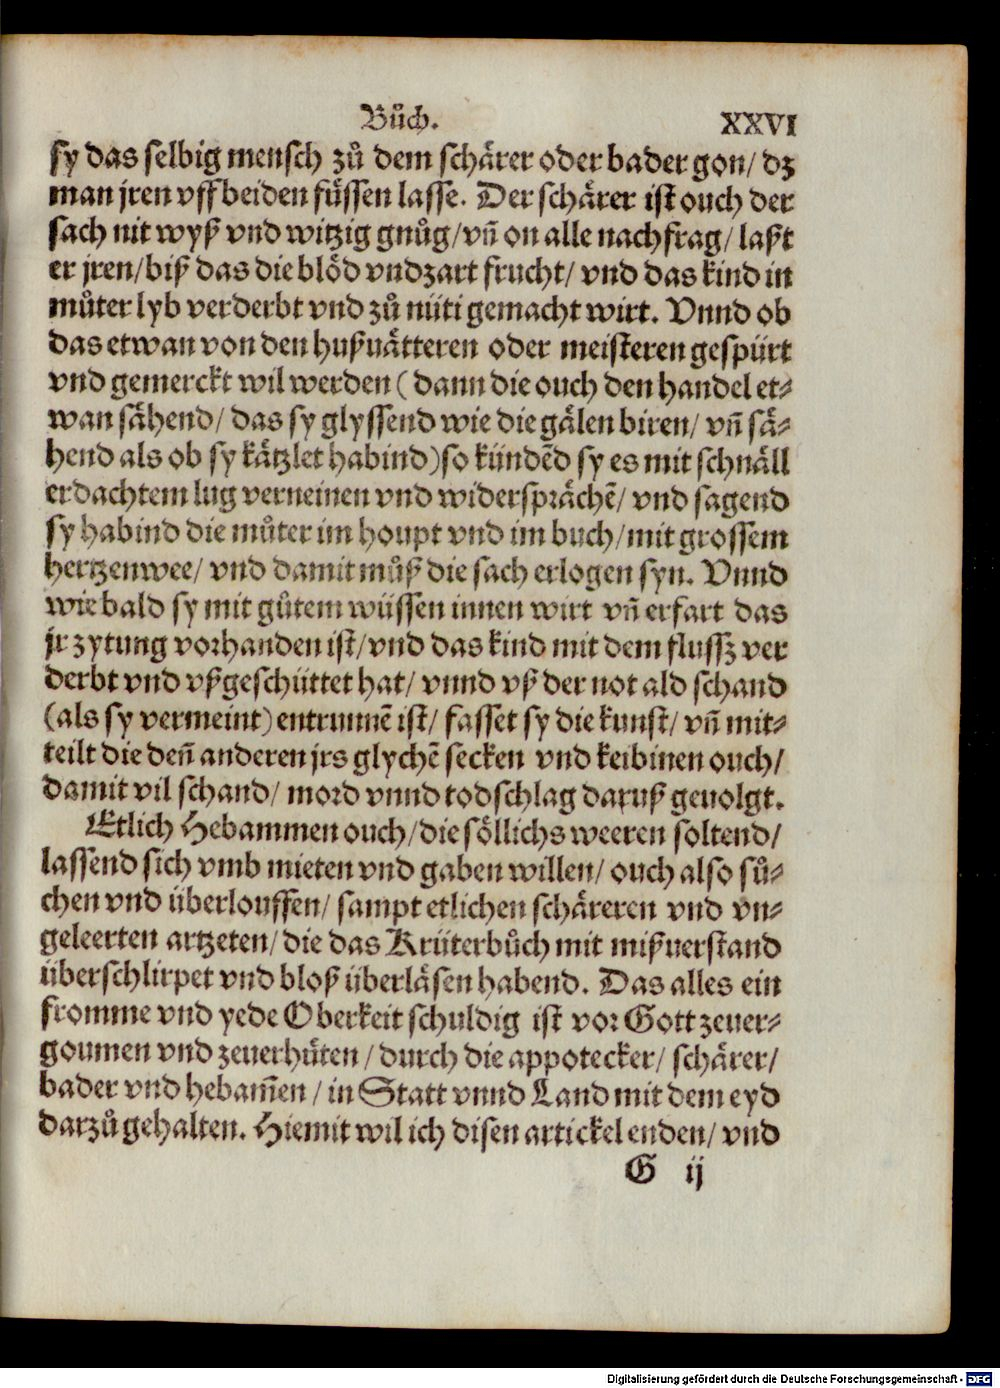 Bůch.
XXVI
sy das selbig mensch zů dem schärer oder bader gon/ dz
man jren vff beiden füssen lasse. Der schärer ist ouch der
sach nit wyß vnd witzig gnůg/ vñ on alle nachfrag/ laßt
er jren/ biß das die blöd vnd zart frucht/ vnd das kind in
můter lyb verderbt vnd zů nüti gemacht wirt. Vnnd ob
das etwan von den hußuätteren oder meisteren gespürt
vnd gemerckt wil werden ( dann die ouch den handel et⸗
wan sähend/ das sy glyssend wie die gälen biren/ vñ sä⸗
hend als ob sy kätzlet habind) so kündẽd sy es mit schnäll
erdachtem lug verneinen vnd widersprächẽ/ vnd sagend
sy habind die můter im houpt vnd im buch/ mit grossem
hertzenwee/ vnd damit můß die sach erlogen syn. Vnnd
wie bald sy mit gůtem wüssen innen wirt vñ erfart das
jr zytung vorhanden ist/ vnd das kind mit dem flussz ver
derbt vnd vßgeschüttet hat/ vnnd vß der not ald schand
(als sy vermeint) entrunnẽ ist/ fasset sy die kunst/ vñ mit⸗
teilt die deñ anderen jrs glychẽ secken vnd keibinen ouch/
damit vil schand/ mord vnnd todschlag daruß geuolgt.
Etlich Hebammen ouch/ die söllichs weeren soltend/
lassend sich vmb mieten vnd gaben willen/ ouch also sů⸗
chen vnd überlouffen/ sampt etlichen schäreren vnd vn⸗
geleerten artzeten/ die das Krüterbůch mit mißuerstand
überschlirpet vnd bloß überläsen habend. Das alles ein
fromme vnd yede Oberkeit schuldig ist vor Gott zeuer⸗
goumen vnd zeuerhüten / durch die appotecker/ schärer/
bader vnd hebam̃en / in Statt vnnd Land mit dem eyd
darzů gehalten. Hiemit wil ich disen artickel enden/ vnd
G ij
Digitalisierung gefördert durch die Deutsche Forschungsgemeinschaft - DFG